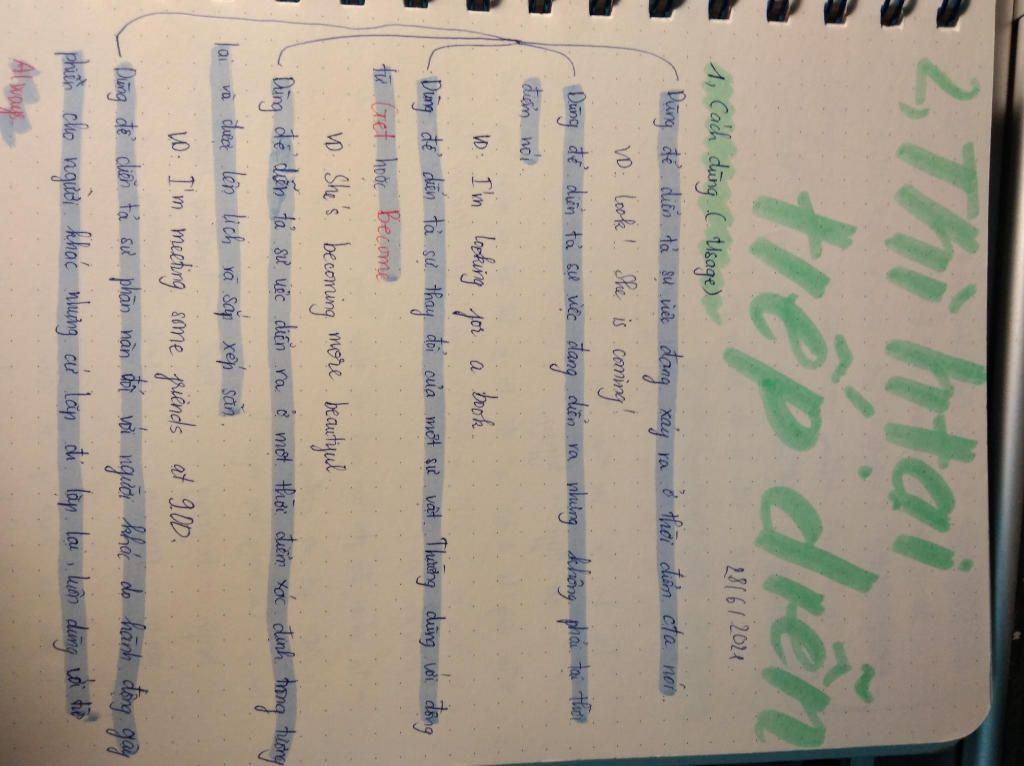 2, Thì hiện tại
tiếp diễn
28/6/2021
1, Cách dùng (Usage)
Dùng để diễn tả sự việc đang xảy ra ở thời điểm nói.
VD: Look! She is coming!
Dùng để diễn tả sự việc đang diễn ra nhưng không phải tại thời
điểm nói.
VD: I'm looking for a book.
Dùng để diễn tả sự thay đổi của một sự vật. Thường dùng với động
từ Get hoặc Become
VD: She's becoming more beautiful.
Dùng để diễn tả sự việc diễn ra ở một thời điểm xác định trong tương
lai và được lên lịch và sắp xếp sẵn.
VD: I'm meeting some friends at 9:00.
Dùng để diễn tả sự phàn nàn đối với người khác do hành động gây
phiền cho người khác nhưng cứ lặp đi lặp lại, luôn dùng với từ
Always.